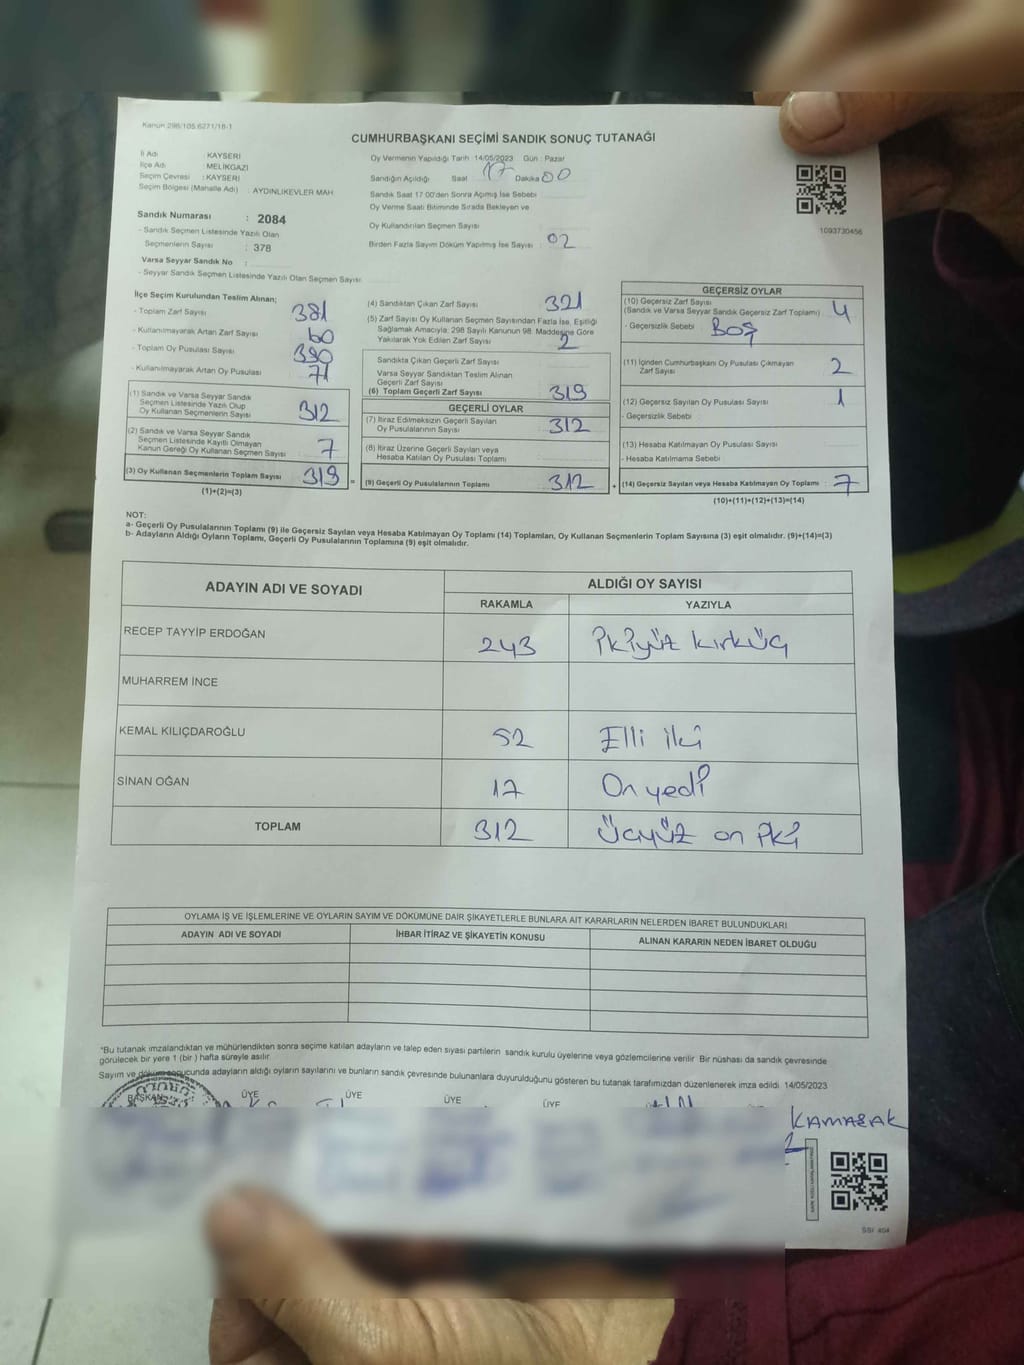 Kanun 298/105,6271/18-1
CUMHURBAŞKANI SEÇİMİ SANDIK SONUÇ TUTANAĞI
İl Adı : KAYSERİ
İlçe Adı : MELİKGAZİ
Seçim Çevresi : KAYSERİ
Seçim Bölgesi (Mahalle Adı) : AYDINLIKEVLER MAH.
Sandık Numarası : 2084
- Sandık Seçmen Listesinde Yazılı Olan
Seçmenlerin Sayısı : 378
Varsa Seyyar Sandık No :
- Seyyar Sandık Seçmen Listesinde Yazılı Olan Seçmen Sayısı
Oy Vermenin Yapıldığı Tarih : 14/05/2023 Gün : Pazar
Sandığın Açıldığı Saat 17 Dakika 00
Sandık Saat 17:00'den Sonra Açımış İse Sebebi
Oy Verme Saati Bitiminde Sırada Bekleyen ve
Oy Kullandırılan Seçmen Sayısı
Birden Fazla Sayım Döküm Yapılmış İse Sayısı : 02
1093730456
İlçe Seçim Kurulundan Teslim Alınan;
- Toplam Zarf Sayısı 381
- Kullanılmayarak Artan Zarf Sayısı 60
- Toplam Oy Pusulası Sayısı 390
- Kullanılmayarak Artan Oy Pusulası 71
(1) Sandık ve Varsa Seyyar Sandık
Seçmen Listesinde Yazılı Olup
Oy Kullanan Seçmenlerin Sayısı 312
(2) Sandık ve Varsa Seyyar Sandık
Seçmen Listesinde Kayıtlı Olmayan
Kanun Gereği Oy Kullanan Seçmen Sayısı 7
(3) Oy Kullanan Seçmenlerin Toplam Sayısı 319
(1)+(2)=(3)
(4) Sandıktan Çıkan Zarf Sayısı 321
(5) Zarf Sayısı Oy Kullanan Seçmen Sayısından Fazla İse, Eşitliği
Sağlamak Amacıyla; 298 Sayılı Kanunun 98. Maddesine Göre
Yakılarak Yok Edilen Zarf Sayısı 2
Sandıkta Çıkan Geçerli Zarf Sayısı
Varsa Seyyar Sandıktan Teslim Alınan
Geçerli Zarf Sayısı
(6) Toplam Geçerli Zarf Sayısı 319
GEÇERLİ OYLAR
(7) İtiraz Edilmeksizin Geçerli Sayılan
Oy Pusulalarının Sayısı 312
(8) İtiraz Üzerine Geçerli Sayılan veya
Hesaba Katılan Oy Pusulası Toplamı
= (9) Geçerli Oy Pusulalarının Toplamı 312
GEÇERSİZ OYLAR
(10) Geçersiz Zarf Sayısı
(Sandık ve Varsa Seyyar Sandık Geçersiz Zarf Toplamı) 4
- Geçersizlik Sebebi : BOŞ
(11) İçinden Cumhurbaşkanı Oy Pusulası Çıkmayan
Zarf Sayısı 2
(12) Geçersiz Sayılan Oy Pusulası Sayısı 1
- Geçersizlik Sebebi
(13) Hesaba Katılmayan Oy Pusulası Sayısı
- Hesaba Katılmama Sebebi
+ (14) Geçersiz Sayılan veya Hesaba Katılmayan Oy Toplamı 7
(10)+(11)+(12)+(13)=(14)
NOT:
a- Geçerli Oy Pusulalarının Toplamı (9) ile Geçersiz Sayılan veya Hesaba Katılmayan Oy Toplamı (14) Toplamları, Oy Kullanan Seçmenlerin Toplam Sayısına (3) eşit olmalıdır. (9)+(14)=(3)
b- Adayların Aldığı Oyların Toplamı, Geçerli Oy Pusulalarının Toplamına (9) eşit olmalıdır.
ADAYIN ADI VE SOYADI ALDIĞI OY SAYISI
RAKAMLA YAZIYLA
RECEP TAYYİP ERDOĞAN 243 İkiyüz kırküç
MUHARREM İNCE
KEMAL KILIÇDAROĞLU 52 Elli iki
SİNAN OĞAN 17 On yedi
TOPLAM 312 üçyüz on iki
OYLAMA İŞ VE İŞLEMLERİNE VE OYLARIN SAYIM VE DÖKÜMÜNE DAİR ŞİKAYETLERLE BUNLARA AİT KARARLARIN NELERDEN İBARET BULUNDUKLARI
ADAYIN ADI VE SOYADI İHBAR İTİRAZ VE ŞİKAYETİN KONUSU ALINAN KARARIN NEDEN İBARET OLDUĞU
*Bu tutanak imzalandıktan ve mühürlendikten sonra seçime katılan adayların ve talep eden siyasi partilerin sandık kurulu üyelerine veya gözlemcilerine verilir. Bir nüshası da sandık çevresinde
görülecek bir yere 1 (bir ) hafta süreyle asılır.
Sayım ve döküm sonucunda adayların aldığı oyların sayılarını ve bunların sandık çevresinde bulunanlara duyurulduğunu gösteren bu tutanak tarafımızdan düzenlenerek imza edildi. 14/05/2023
BAŞKAN ÜYE ÜYE ÜYE ÜYE
KAMALAK
SSI: 404